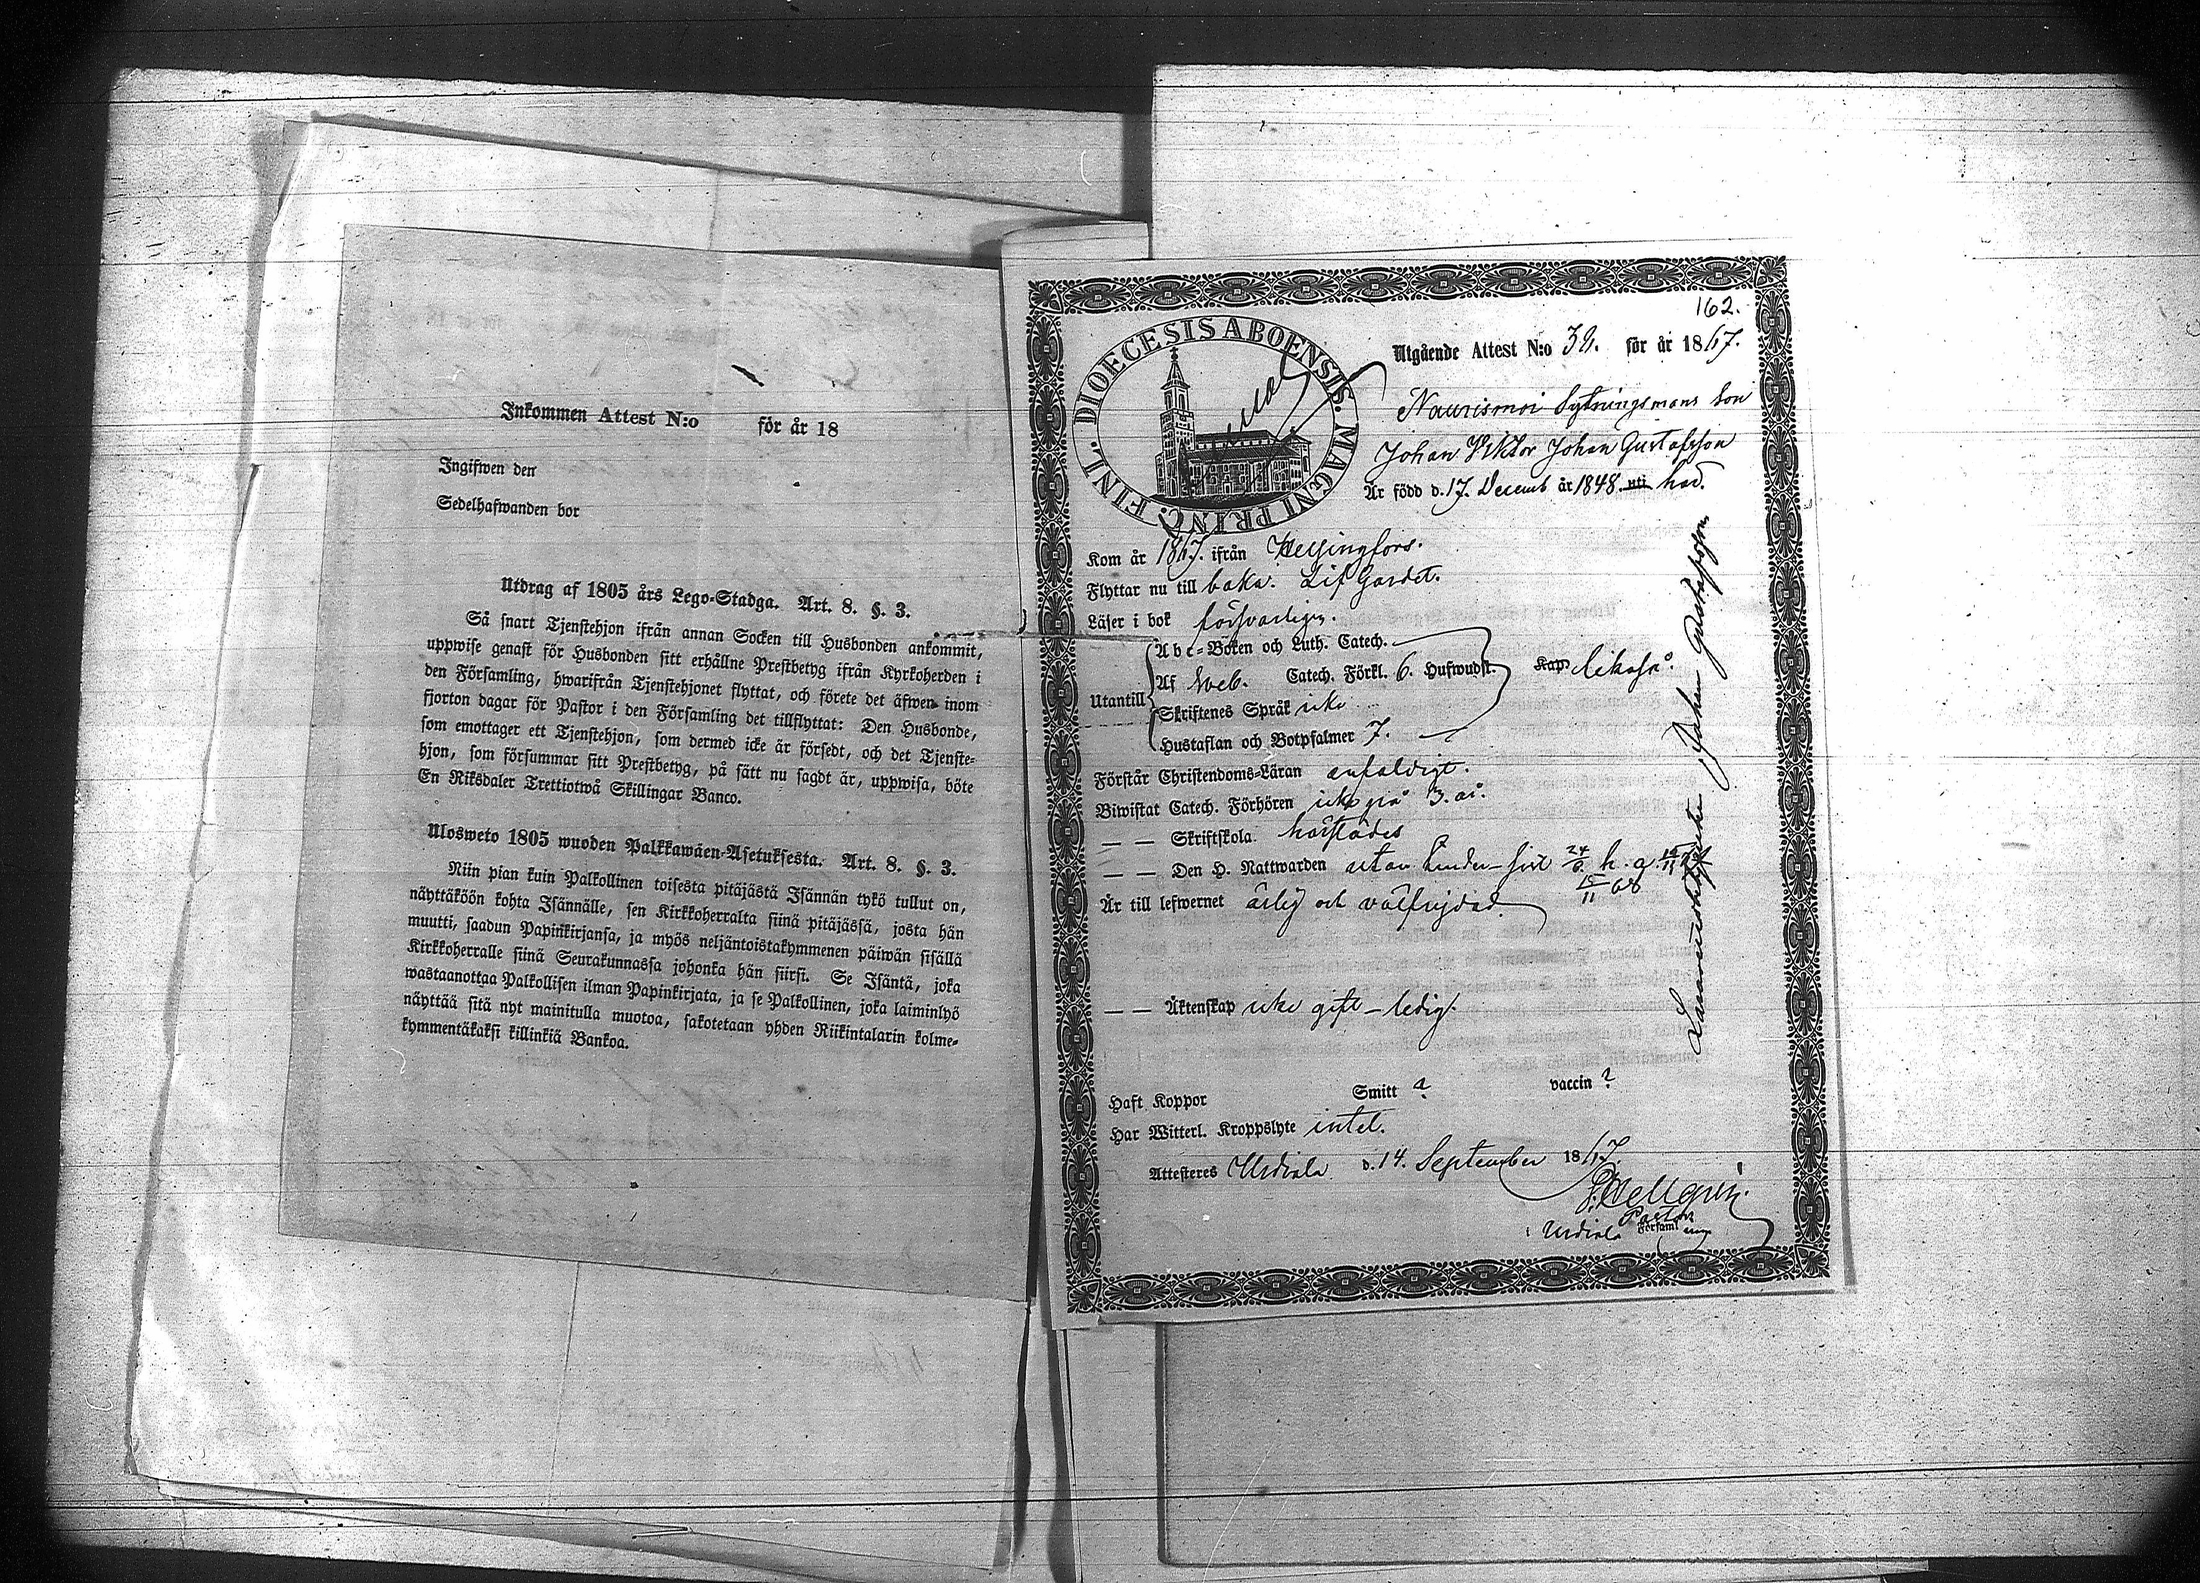 Inkommen Attest N:o för år 18
Ingifwen den
Sedelhafwanden bor
Utdrag af 1805 års Lego-Stadga. Art. 8. §. 3.
Så snart Tjenstehjon ifrån annan Socken till Husbonden ankommit,
uppwise genast för Husbonden sitt erhållne Prestbetyg ifrån Kyrkoherden i
den Församling, hwarifrån Tjenstehjonet flyttat, och förete det äfwen inom
fjorton dagar för Pastor i den Församling det tillflyttat: Den Husbonde,
som emottager ett Tjenstehjon, som dermed icke är försedt, och det Tjenste-
hjon, som försummar sitt Prestbetyg, på sätt nu sagdt är, uppwisa, böte
En Riksdaler Trettiotwå Skillingar Banco.
Ulosweto 1805 wuoden Palkkawäen-Asetuksesta. Art. 8. §. 3.
Niin pian kuin Palkollinen toisesta pitäjästä Isännän tykö tullut on,
näyttäköön kohta Isännälle, sen Kirkkoherralta siinä pitäjässä, josta hän
muutti, saadun Papinkirjansa, ja myös neljäntoistakymmenen päiwän sisällä
Kirkkoherralle siinä Seurakunnassa johonka hän siirsi. Se Isäntä, joka
wastaanottaa Palkollisen ilman Papinkirjata, ja se Palkollinen, joka laiminlyö
näyttää sitä nyt mainitulla muotoa, sakotetaan yhden Riikintalarin kolme-
kymmentäkaksi killinkiä Bankoa.
162.
DIOECESIS ABOENSIS. MAGNI PRINC. FINL.
Utgående Attest N:o för år 1867.
Naurismoi Sytningsmans Son
Johan Viktor Johan Gustafsson
Är född d. 17. Decemb år 1848. uti had.
Kom år 1867. ifrån Helsingfors.
Flyttar nu till baka. Lif Gardet.
Läser i bok försvarligen.
Abc-Boken och Luth. Catech.
Utantill Af Sveb. Catech. Förkl. 6. Hufwudst. Kap likaså.
Skriftenes Språk icke
Hustaflan och Botpsalmer 7.
Förstår Christendoms-Läran enfaldigt.
Biwistat Catech. Förhören icke på 3. år.
— — Skriftskola härstädes
— — Den H. Nattwarden utan hinder
Är till lefwernet ärlig och välfrejdad
— — Äktenskap icke gift – ledig.
Haft Koppor Smitt ? vaccin ?
Har Witterl. Kroppslyte intet.
Attesteres Urdiala d. 14. September 1867.
Pastor
i Urdiala Församling
Johan Gustafsson